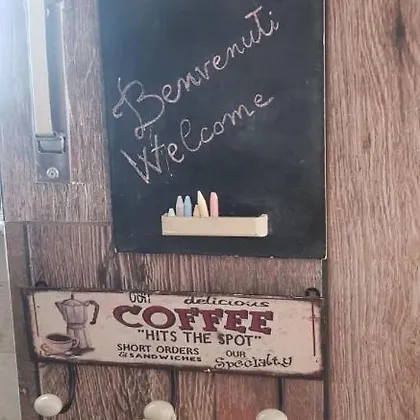 Benvenuti
Welcome
OUR delicious
COFFEE
"HITS THE SPOT"
SHORT ORDERS
& SANDWICHES
OUR
Specialty